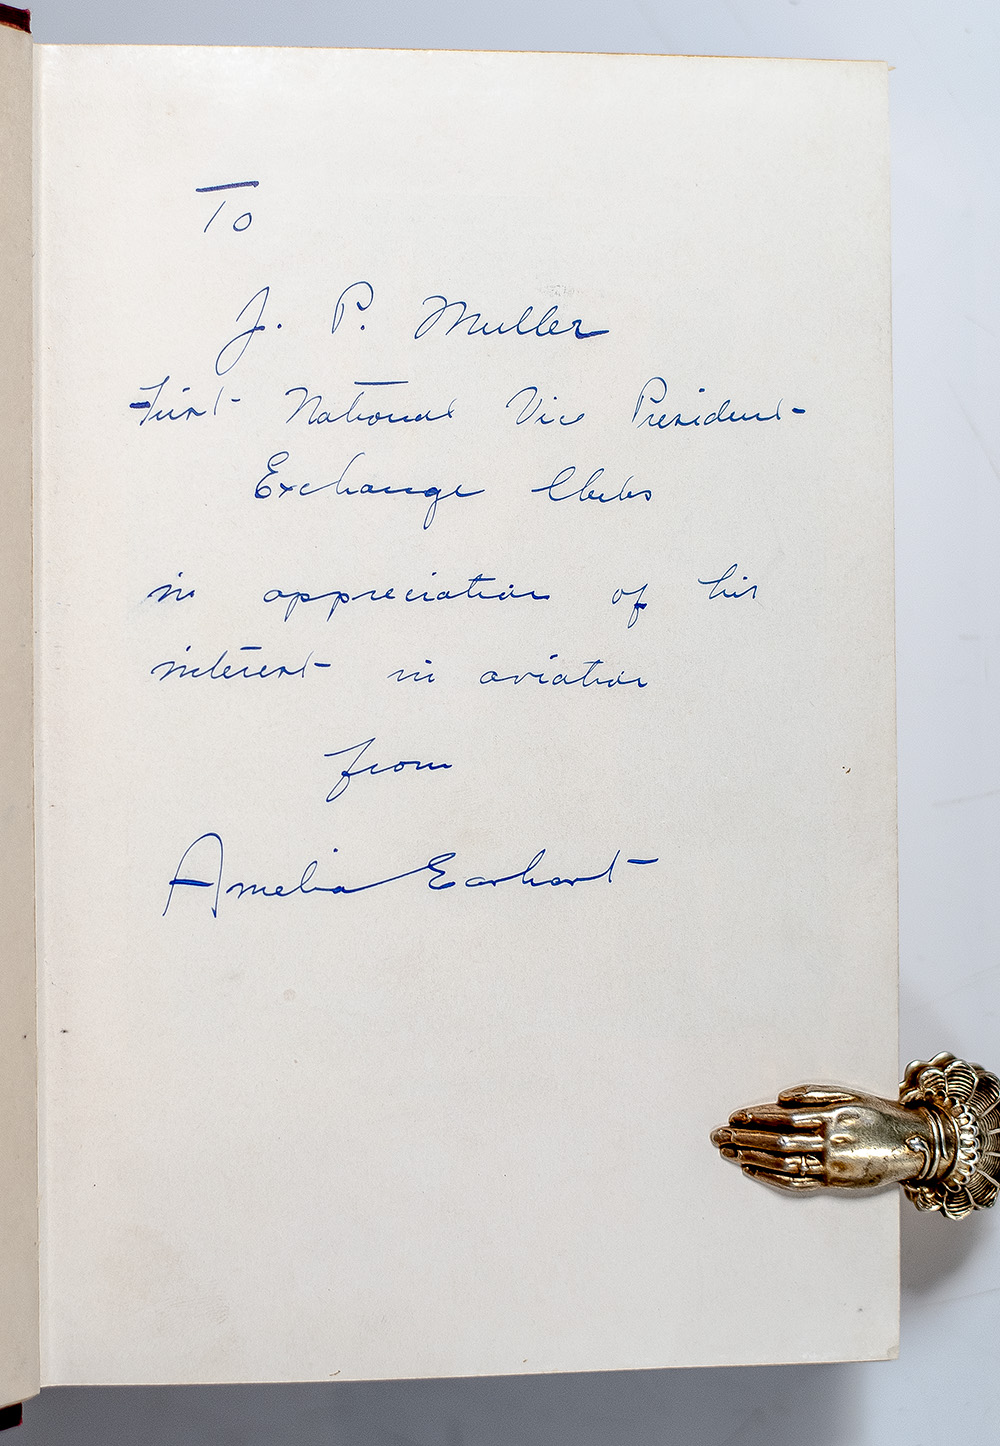 To
J. P. Muller
First National Vice President
Exchange Clubs
in appreciation of his
interest in aviation
from
Amelia Earhart